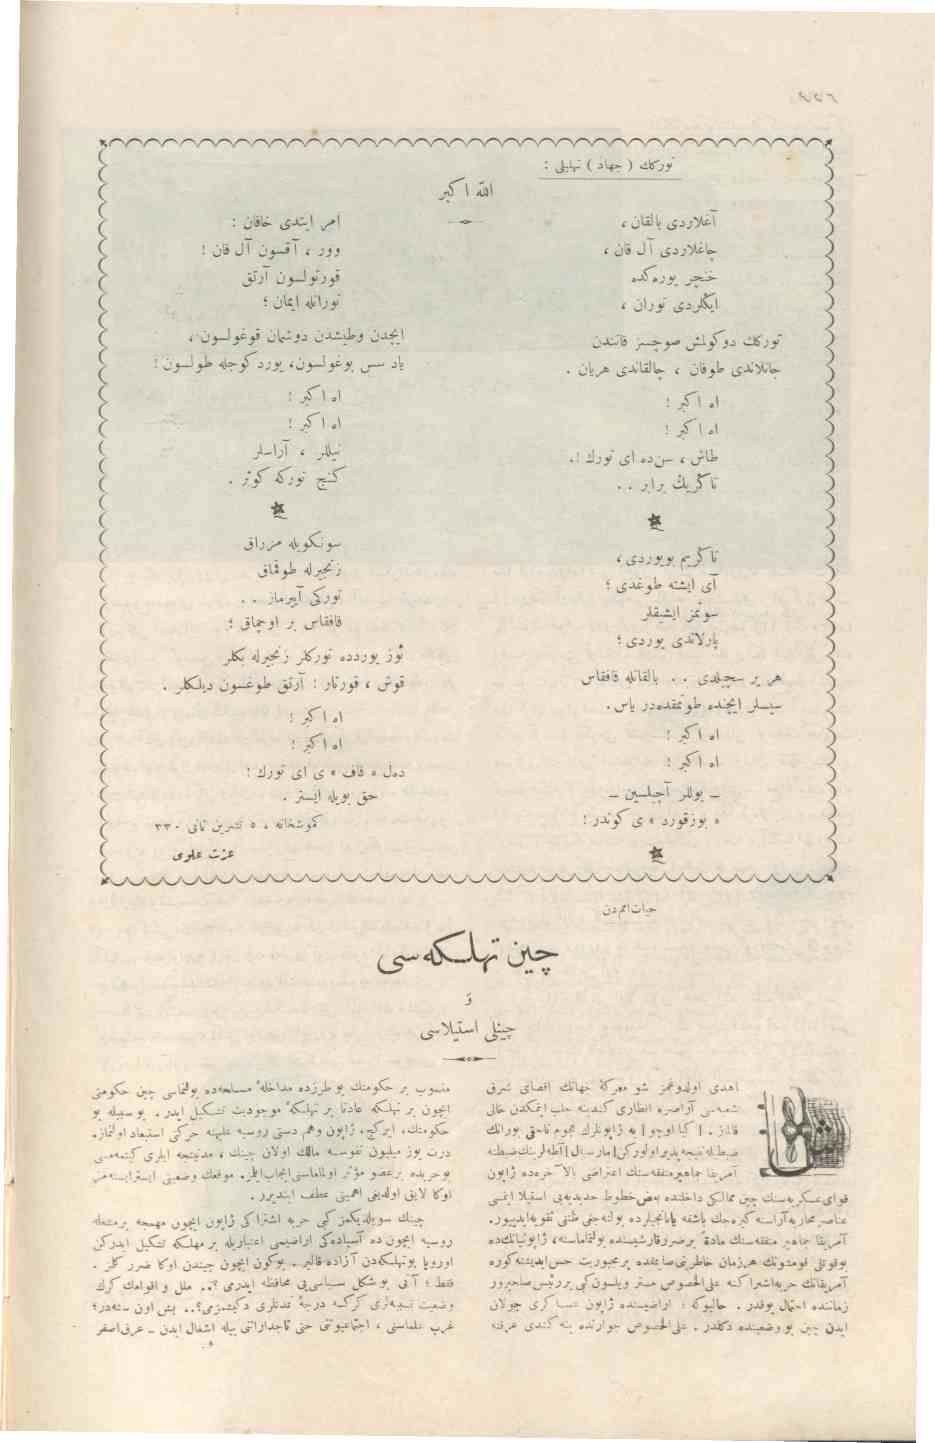 توركك ( جهاد ) تهليلى :
اللّٰه اكبر
آغلاردى بالقان ،
چاغلاردى آل قان ،
خنجر يوره‌كده
ايكلردى توران ،
توركك دوكولمش صوچسز قانندن
جانلاندى طوفان ، چالقاندى هريان .
اه اكبر !
اه اكبر !
طاش ، سن‌ده اى تورك !.
تاكريڭ برابر . .
تاكريم بويوردى ،
آى ايشته طوغدى ؛
سونمز ايشيقلر
پارلاندى يوردى ؛
هر ير سچيلدى . . بالقانله قافقاس
سيسلر ايچنده طونمقده‌در ياس .
اه اكبر !
اه اكبر !
ــ يوللر آچيلسين ــ
« بوزقورد » ى كوندر !
امر ايتدى خاقان :
وور ، آقسون آل قان !
قورتولسون آرتق
تورانله ايمان ؛
ايچدن وطيشدن دوشمان قوغولسون ،
ياد سس بوغولسون، يورد كوجله طولسون !
اه اكبر !
اه اكبر !
نيللر ، آراسلر
كنج توركه كوثر .
سونكويله مزراق
زنجيرله طوقماق
توركى آييرماز . .
قافقاس بر اوچماق ؛
ئوز يوردده توركلر زنجيرله بكلر
قوش ، قورتار ! آرتق طوغسون ديلكلر .
اه اكبر !
اه اكبر !
ده‌ل « قاف » ى اى تورك !
حق بويله ايستر .
كموشخانه ، ٥ تشرين ثانى ٣٣٠
عزت علوى
حيات امم‌دن
چين تهلكه‌سى
و
چينلى استيلاسى
اهدى اولدوغمز شو معركۀ جهانك اقصاى شرق
شعبه‌سى آراصره انظارى كندينه جلب ايتمكدن خالى
قالماز . [ كيا اوچو ] يه ژاپونلرك هجوم ناحق بورانك
ضبطيله نتيجه‌پذير اولوركن [ مارسال ] آطه‌لرينك ضبطنه
آمريقا جماهير متفقه‌سنك اعتراضى بالآخره‌ده ژاپون
قواى عسكريه‌سنك چين ممالكى داخلنده بعض خطوط حديديه‌يى استيلا ايتمسى
عناصر محاربه آراسنه كيره‌جك باشقه يابانجيلرده بولنه‌جغى ظننى تقويه ايدييور.
آمريقا جماهير متفقه‌سنك مادةً برضرر قارشيسنده بولنماماسنه، ژاپونيانك‌ده
بوقوتلى قومشونك هرزمان خاطرينى صايمقده پرمجبوريت حس ايديشنه كوره
آمريقانك حربه اشتراكنه على‌الخصوص مستر ويلسون كبى بر رئيس صلحپرور
زماننده احتمال يوقدر . حالبوكه ؛ اراضيسنده ژاپون عساكرى جولان
ايدن چين بو وضعيتده دكلدر . على‌الخصوص جوارنده ينه كندى عرقنه
منسوب بر حكومتك بو طرزده مداخلهٔ مسلحه‌ده بولنماسى چين حكومتى
ايچون بر تهلكه عادتا بر تهلكهٔ موجوديت تشكيل ايدر . بو سببله بو
حكومتك، ايركچ، ژاپون وهم دستى روسيه عليهنه حركتى استبعاد اولنماز.
درت يوز ميليون نفوسه مالك اولان چينك ، مدنيتجه ايلرى كيتمه‌مسى
بوحربده برعضو مؤثر اولماماسنى ايجاب ايلر. موقعك وضعيتى ايسترايسته‌مز
اوكا لايق اولديغى اهميتى عطف ايتديرر .
چينك سويلديكمز كبى حربه اشتراكى ژاپون ايچون مهمجه برمشغله
روسيه ايچون ده آسياده‌كى اراضيمى اعتباريله بر مهلكه تشكيل ايدركن
اوروپا بوتهلكه‌دن آزاده قالير . بوكون ايچون چيندن اوكا ضرر كلمز .
فقط ؛ آنى بوشكل سياسى‌يى محافظه ايدرمى ؟.. ملل و اقوامك كرك
وضعيت سياسى كركسه درجۀ تمدنلرى دكيشمزمى؟.. بش اون سنه‌در؛
غرب علماسنى ، اجتماعيوننى حتى تاجدارانى بيله اشغال ايدن ــ عرق اصفر